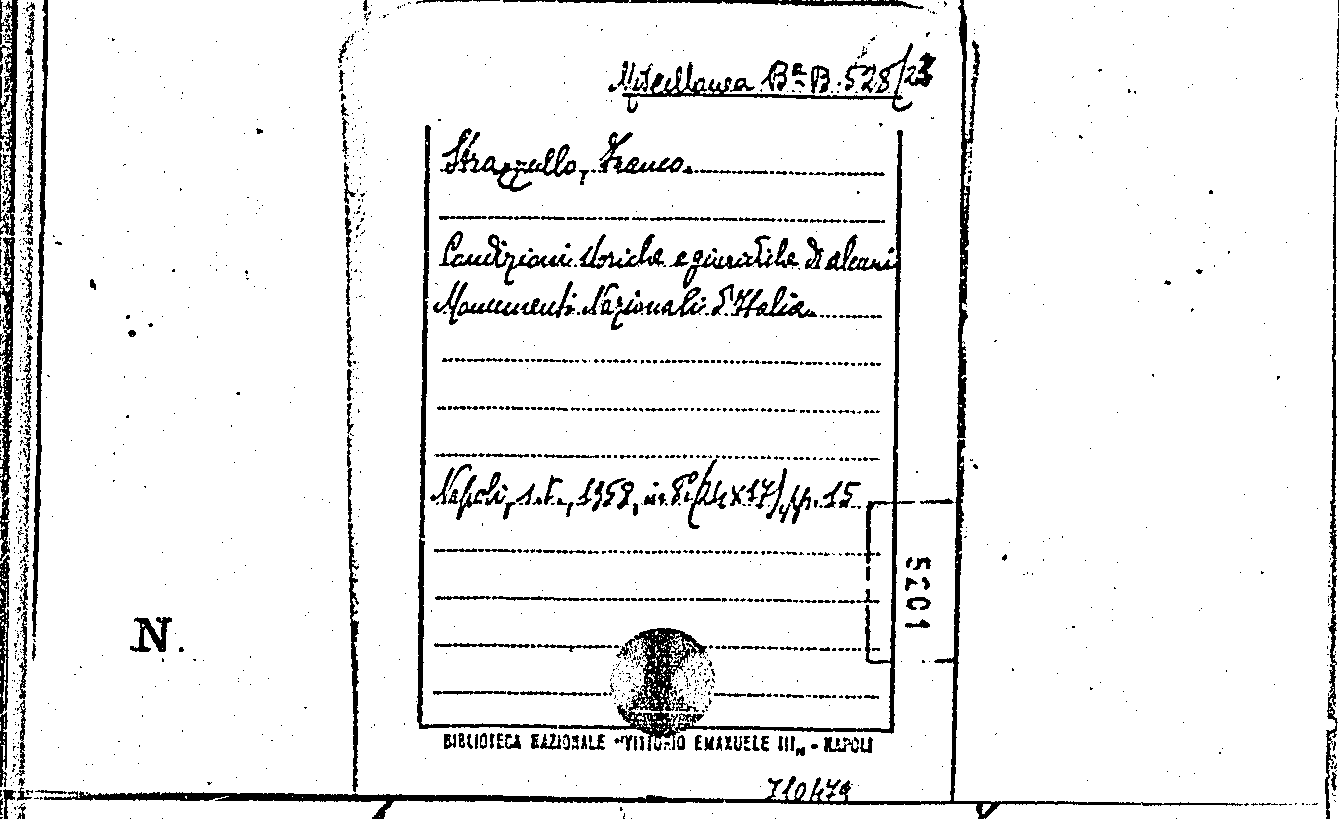 Miscellanea Bᵃ B. 528/23
Strazzullo, Franco.
Condizioni storiche e giuridiche di alcuni
Monumenti Nazionali d'Italia.
Napoli, s.t., 1958, in 8°(24x17), pp. 15
5201
N.
BIBLIOTECA NAZIONALE "VITTORIO EMANUELE III" - NAPOLI
710479